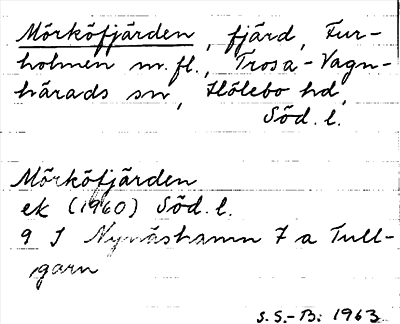 Mörköfjärden, fjärd, Fur-
holmen m.fl., Trosa-Vagn-
härads sn, Hölebo hd,
Söd. l.
Mörköfjärden
ek (1960) Söd. l.
9 I Nynäshamn 7 a Tull-
garn
S.S.-B: 1963